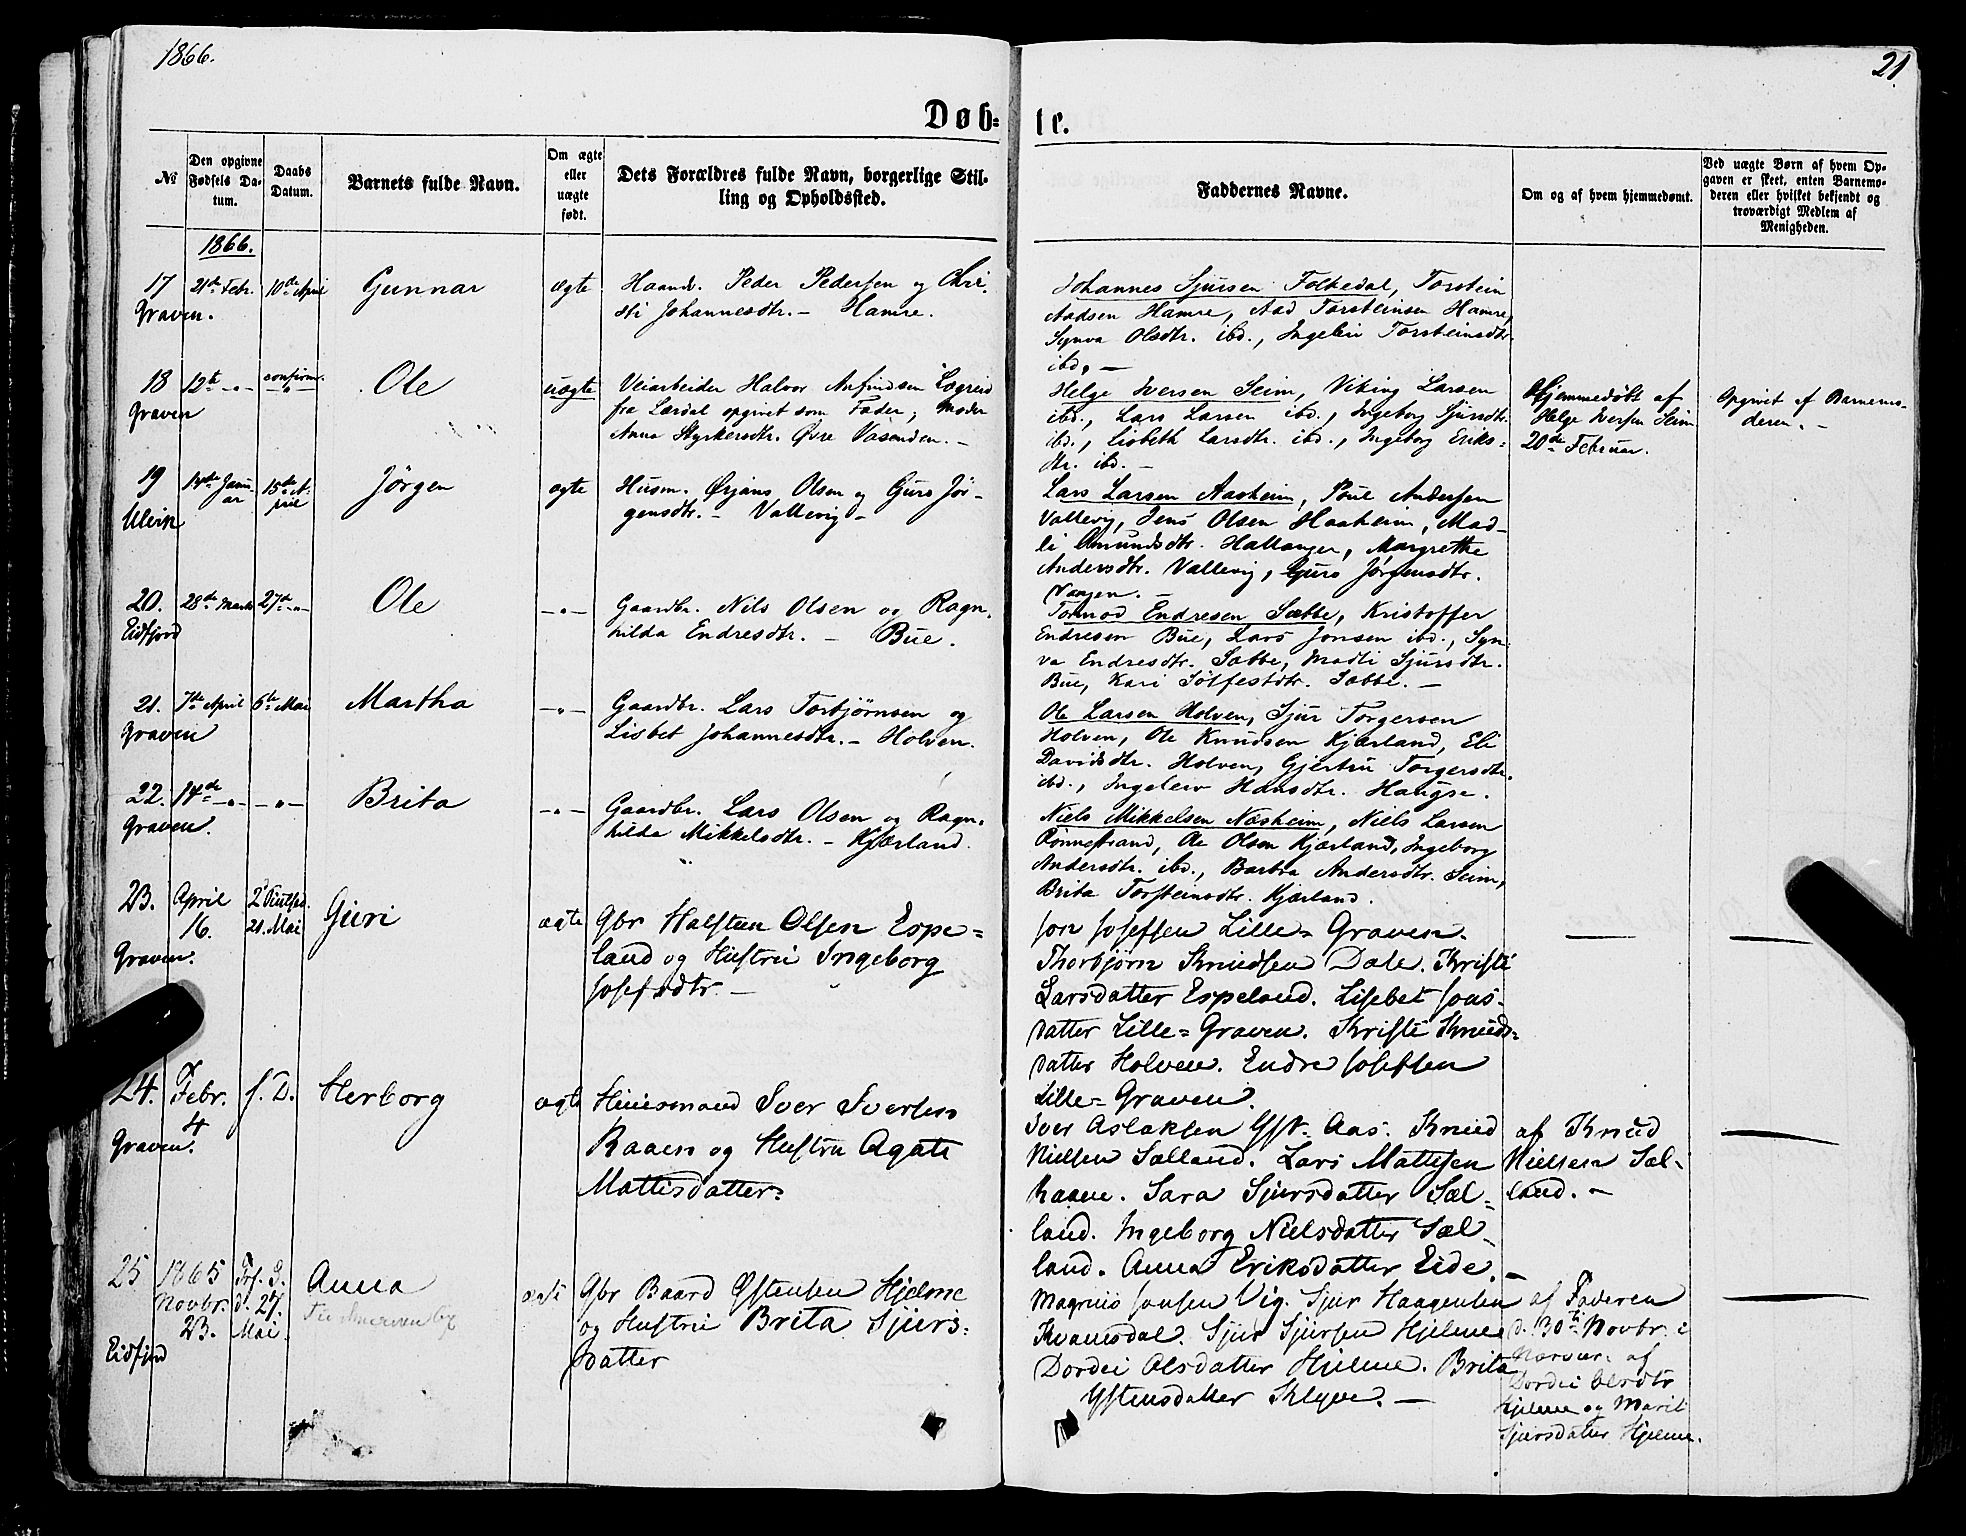 1866.
21.
Døb-
te.
№
Den opgivne Fødsels Da-
tum.
Daabs Datum.
Barnets fulde Navn.
Om ægte eller uægte født.
Dets Forældres fulde Navn, borgerlige Stil-
ling og Opholdssted.
Faddernes Navne.
Om og af hvem hjemmedøbt.
Ved uægte Børn af hvem Op-
gaven er skeet, enten Barnemo-
deren eller hvilket bekjendt og
troværdigt Medlem af
Menigheden.
1866.
17 21de Febr. 10de April Gunnar ægte Haandv. Peder Pedersen og Chri-
Graven. sti Johannesdtr. - Hamre.
Johannes Sjursen Folkedal, Torstein
Aadsen Hamre, Aad Torsteinsen Hamre,
Synva Olsdtr. ibd., Ingeleiv Torsteinsdtr.
ibd. -
18 12te -"- confirm. Ole uægte Veiarbeider Halvor Anfindsen Lægreid
Graven fra Lærdal opgivet som Fader; Moder
Anna Styrkersdtr. Øvre Vasenden. -
Helge Iversen Seim, Viking Larsen
ibd., Lars Larsen ibd., Ingeborg Sjursdtr.
ibd., Lisbeth Larsdtr. ibd., Ingeborg Eriks-
dtr. ibd. -
Hjemmedøbt af
Helge Iversen Seim
20de Februar.
Opgivet af Barnemo-
deren. -
19 14de Janu- 15de A- Jörgen ægte Husm. Ørjans Olsen og Guro Jør-
ar pril
Ulvik gensdtr. - Vallevig -
Lars Larsen Aasheim, Poul Andersen
Vallevig, Jens Olsen Haaheim, Mad-
li Amundsdtr. Hallanger, Margrethe
Andersdtr. Vallevig, Guro Jørgensdtr.
Vangen. -
20. 28de Marts 27de -"- Ole -"- Gaardbr. Nils Olsen og Ragn-
Eidfjord hilda Endresdtr. - Bue.
Tormod Endresen Sæbbe, Kristoffer
Endresen Bue, Lars Jonsen ibd., Syn-
va Endresdtr. Sæbbe, Madli Sjursdtr.
Bue, Kari Sølfestdtr. Sæbbe. -
21. 7de April 6te Mai Martha -"- Gaardbr. Lars Torbjørnsen og
Graven Lisbet Johannesdtr. - Holven.
Ole Larsen Holven, Sjur Torgersen
Holven, Ole Knudsen Kjærland, Eli
Davidsdtr. Holven, Gjertru Torgersdtr.
ibd., Ingeleiv Hansdtr. Haugse.
22. 14de -"- -"- Brita -"- Gaardbr. Lars Olsen og Ragn-
Graven. hilda Mikkelsdtr. - Kjærland.
Niels Mikkelsen Næsheim, Niels Larsen
Rønnestrand, Ole Olsen Kjærland, Ingeborg
Andersdtr. ibd., Barbra Andersdtr. Seim,
Brita Torsteinsdtr. Kjærland.
23. April 2 Pintsed. Guri ægte Gbr Halsten Olsen Espe-
16. 21. Mai land og Hustru Ingeborg
Graven. Josefsdtr. -
Jon Josefsen Lille-Graven.
Thorbjørn Knudsen Dale. Kristi
Larsdatter Espeland. Lisebet Jons-
datter Lille-Graven. Kristi Knuds-
datter Holven. Endre Josefsen
Lille-Graven.
24. Febr. f. D. Herborg ægte Huusmand Iver Iversen
4
Graven. Raaen og Hustru Agate
Mattisdatter
Iver Aslaksen Aas. Knud
Nielsen Sælland. Lars Mattesen
Raaen. Sara Sjursdatter Sæl-
land. Ingeborg Nielsdatter Sæl-
land. Anna Eriksdatter Eide. -
af Knud
Nielsen Sæl-
land. -
25 1865 Trf. S. Anna ægte Gbr Baard Østensen Hjelme
Novbr. d. 27. og Hustru Brita Sjurs-
23. Mai. datter
Eidfjord
Magnus Jonsen Vig. Sjur Haagensen
Kvamsdal. Sjur Sjursen Hjelme
Dordei Olsdatter Hjelme. Brita
Østensdatter Klyve. -
af Faderen
d. 30te Novbr. i
Nærvær. af
Dordei Olsdtr
Hjelme og Marit
Sjursdatter Hjelme.